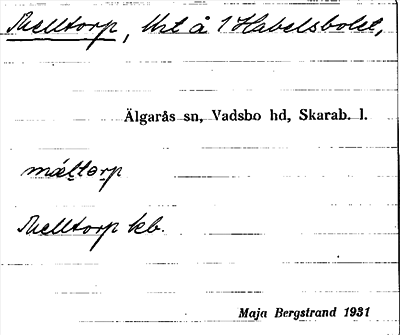 Melltorp, lht å 1 Habelsbolet,
Älgarås sn, Vadsbo hd, Skarab. l.
mæ̀ltɔrp
Melltorp kb.
Maja Bergstrand 1931